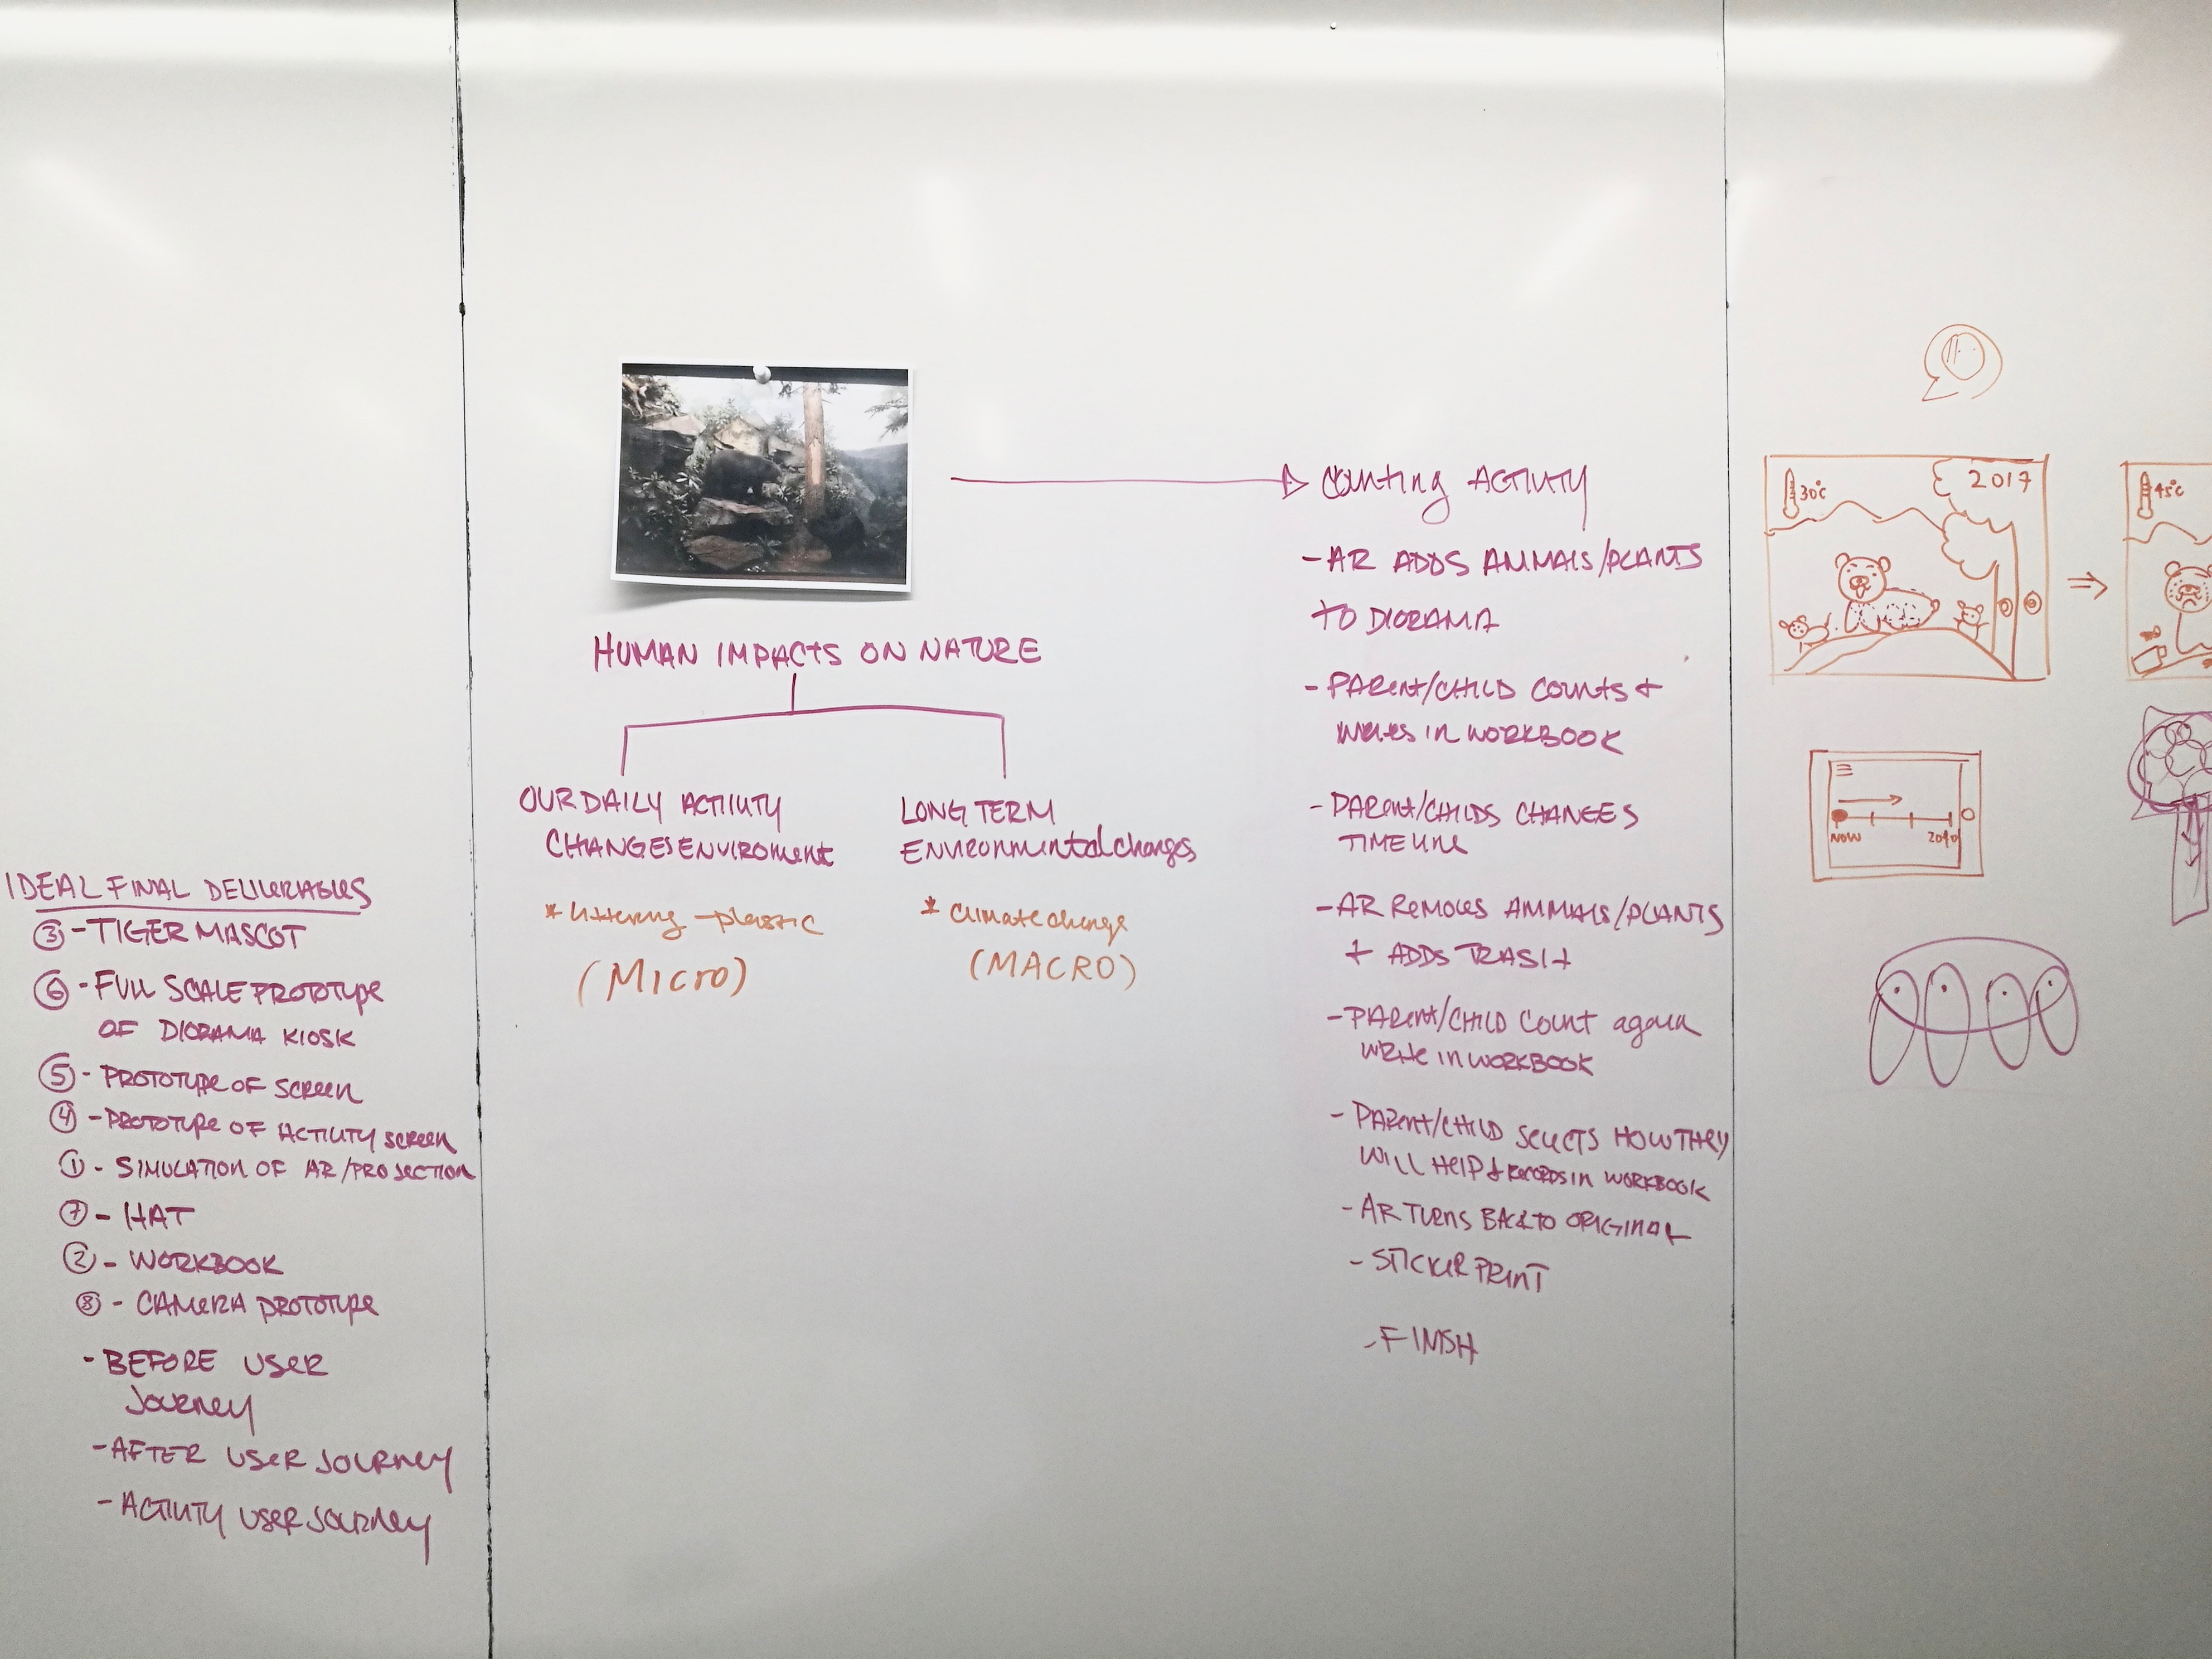 IDEAL FINAL DELIVERABLES
③ - TIGER MASCOT
⑥ - FULL SCALE PROTOTYPE
OF DIORAMA KIOSK
⑤ - PROTOTYPE OF SCREEN
④ - PROTOTYPE OF ACTIVITY SCREEN
① - SIMULATION OF AR/PROJECTION
⑦ - HAT
② - WORKBOOK
⑧ - CAMERA PROTOTYPE
- BEFORE USER
JOURNEY
- AFTER USER JOURNEY
- ACTIVITY USER JOURNEY
HUMAN IMPACTS ON NATURE
OUR DAILY ACTIVITY
CHANGES ENVIROMENT
* littering - plastic
(MICRO)
LONG TERM
ENVIRONMENTAL changes
* Climate change
(MACRO)
COUNTING ACTIVITY
- AR ADDS ANIMALS/PLANTS
TO DIORAMA
- PARENT/CHILD COUNTS +
WRITES IN WORKBOOK
- PARENT/CHILDS CHANGES
TIMELINE
- AR REMOVES ANIMALS/PLANTS
+ ADDS TRASH
- PARENT/CHILD COUNT again
WRITE IN WORKBOOK
- PARENT/CHILD SELECTS HOW THEY
WILL HELP + RECORDS IN WORKBOOK
- AR TURNS BACK TO ORIGINAL
- STICKER PRINT
- FINISH
30°C
2017
45°C
NOW
2040